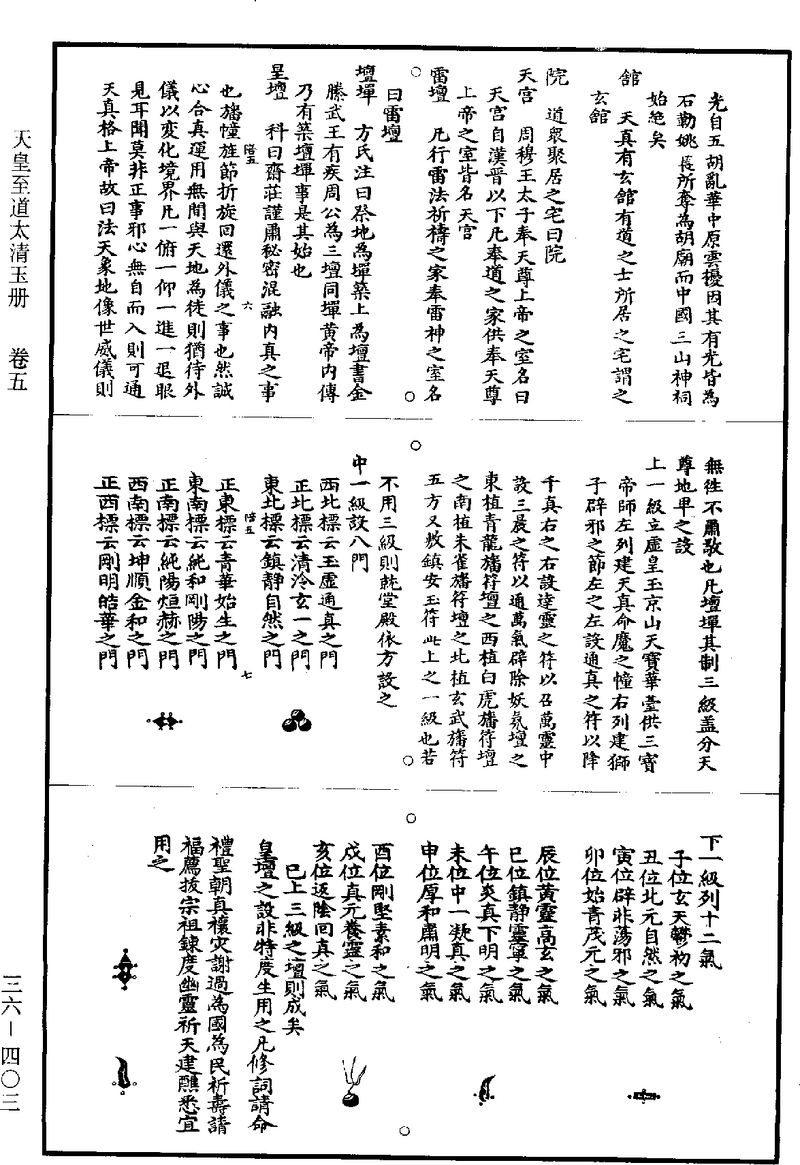 天皇至道太清玉册　卷五
三六—四〇三
光自五胡亂華中原雲擾因其有光皆為
石勒姚萇所奪為胡廟而中國三山神祠
始絕矣
舘　天真有玄舘有道之士所居之宅謂之
玄舘
院　道眾聚居之宅曰院
天宫　周穆王太子奉天尊上帝之室名曰
天宫自漢晉以下凡奉道之家供奉天尊
上帝之室皆名天宫
雷壇　凡行雷法祈禱之家奉雷神之室名
曰雷壇
壇墠　方氏注曰祭地為墠築上為壇書金
縢武王有疾周公為三壇同墠黄帝内傳
乃有築壇墠事是其始也
皇壇　科曰齋莊謹肅秘密混融内真之事
陪五　六
也旛幢旌節折旋回還外儀之事也然誠
心合真運用無間與天地為徒則猶待外
儀以变化境界凡一俯一仰一進一退眼
見耳聞莫非正事邪心無自而入則可通
天真格上帝故曰法天象地像世威儀則
無徃不肅敬也凡壇墠其制三級盖分天
尊地卑之設
上一級立虛皇玉京山天寶華臺供三寶
帝師左列建天真命魔之幢右列建獅
子辟邪之節左之左設通真之符以降
千真右之右設達靈之符以召萬靈中
設三晨之符以通萬氣辟除妖氛壇之
東植青龍旛符壇之西植白虎旛符壇
之南植朱雀旛符壇之北植玄武旛符
五方又敷鎮安玉符此上之一級也若
不用三級則就堂殿依方設之
中一級設八門
西北標云玉虛通真之門
正北標云清泠玄一之門
東北標云鎮靜自然之門
陪五　七
正東標云青華始生之門
東南標云純和剛陽之門
正南標云純陽烜赫之門
西南標云坤順金和之門
正西標云剛明皓華之門
下一級列十二氣
子位玄天鬱初之氣
丑位北元自然之氣
寅位辟非蕩邪之氣
卯位始青茂元之氣
辰位黄靈高玄之氣
巳位鎮靜靈軍之氣
午位炎真下明之氣
未位中一凝真之氣
申位厚和肅明之氣
酉位剛堅素和之氣
戌位真元養靈之氣
亥位返陰回真之氣
已上三級之壇則成矣
皇壇之設非特度生用之凡修詞請命
禮聖朝真禳灾謝過為國為民祈壽請
福薦拔宗祖鍊度幽靈祈天建醮悉宜
用之